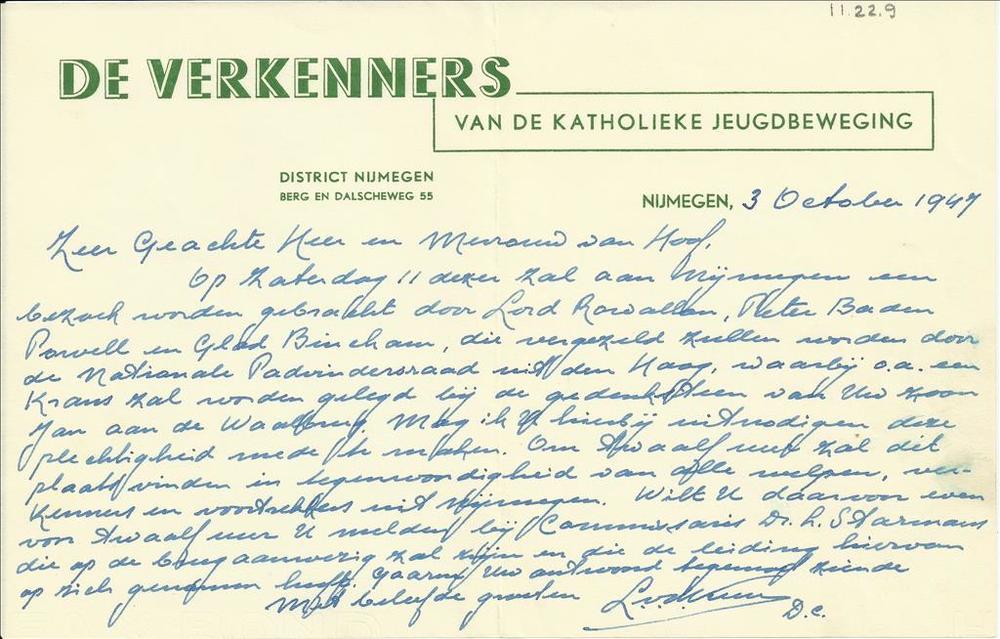 11.22.9
DE VERKENNERS
VAN DE KATHOLIEKE JEUGDBEWEGING
DISTRICT NIJMEGEN
BERG EN DALSCHEWEG 55
NIJMEGEN, 3 October 1947
Zeer Geachte Heer en Mevrouw van Hoof,
Op Zaterdag 11 dezer zal aan Nijmegen een
bezoek worden gebracht door Lord Rowallan, Peter Baden
Powell en Glad Bincham, die vergezeld zullen worden door
de Nationale Padvindersraad uit den Haag, waarbij o.a. een
Krans zal worden gelegd bij de gedenksteen van Uw zoon
Jan aan de Waalbrug. Mag ik U hierbij uitnodigen deze
plechtigheid mede te maken. Om twaalf uur zal dit
plaats vinden in tegenwoordigheid van alle welpen, ver-
kenners en voortrekkers uit Nijmegen. Wilt U daarvoor even
voor twaalf uur U melden bij Commissaris Dr. L. Starmans
die op de brug aanwezig zal zijn en die de leiding hiervan
op zich genomen heeft. Gaarne Uw antwoord tegemoet ziende
Met beleefde groeten
D.C.